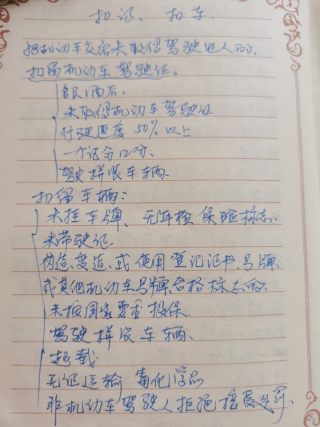 扣证、扣车
把机动车交给未取得驾驶证人的,
扣留机动车驾驶证。
饮酒后
未取得机动车驾驶证
行驶速度50%以上
一个记分12分
驾驶拼装车辆
扣留车辆:
未挂车牌、无年检保险标志
未带驾驶证
伪造、变造、或使用登记证书、号牌
或其他机动车号牌合格标志的
未按国家要求投保
驾驶拼装车辆
超载
无证运输毒化学品
非机动车驾驶人拒绝接受处罚